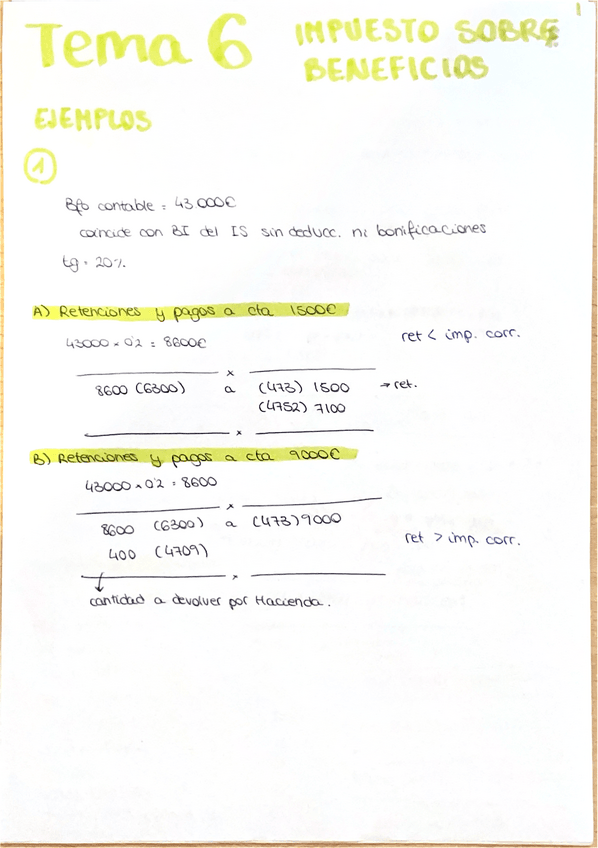 1
Tema 6 IMPUESTO SOBRE
BENEFICIOS
EJEMPLOS
1
Bfo contable = 43 000€
coincide con BI del IS sin deducc. ni bonificaciones
tg = 20%
A) Retenciones y pagos a cta 1500€
43000 × 0'2 = 8600€ ret < imp. corr.
x
8600 (6300) a (473) 1500 → ret.
(4752) 7100
x
B) Retenciones y pagos a cta 9000€
43000 × 0'2 = 8600
x
8600 (6300) a (473) 9000
400 (4709) ret > imp. corr.
x
cantidad a devolver por Hacienda.